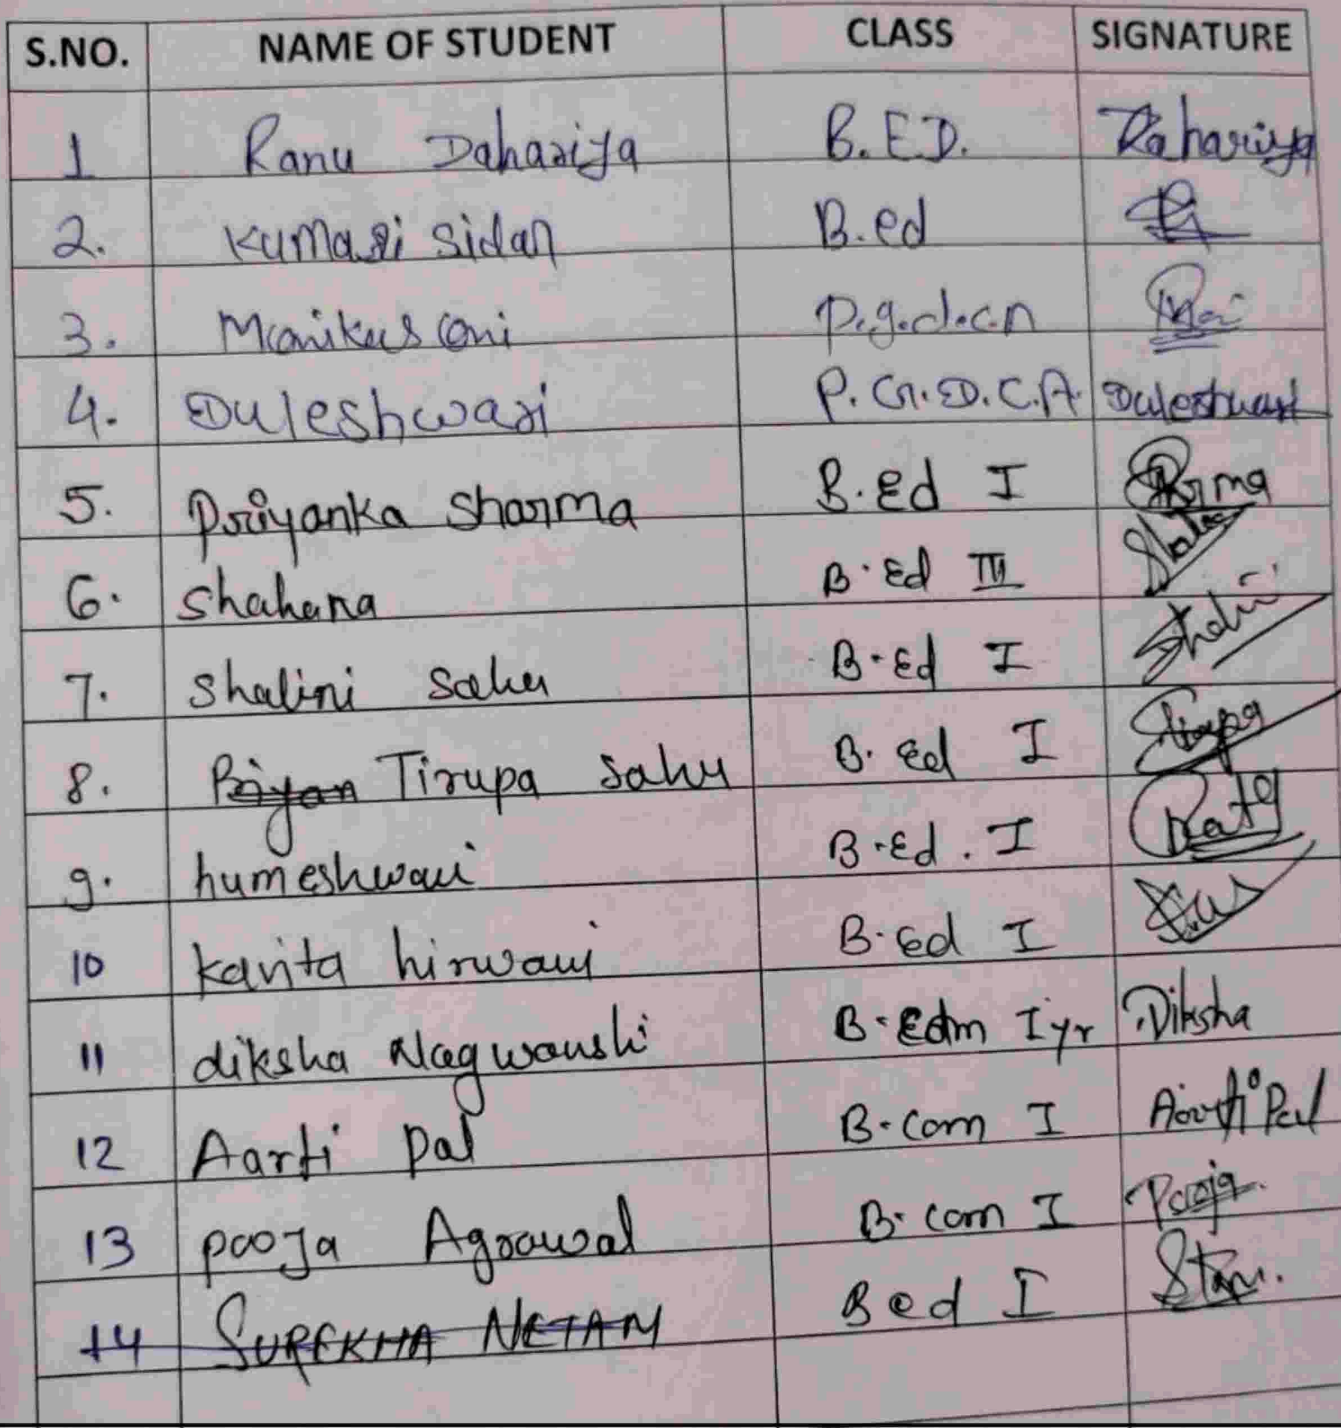 S.NO. NAME OF STUDENT CLASS SIGNATURE
1 Ranu Dahariya B.E.D. Dahariya
2. Kumari Sidar B.ed
3. Manikus oni P.g.d.c.a
4. Duleshwari P.G.D.C.A. Duleshwari
5. Priyanka Sharma B.Ed I
6. Shahana B.Ed III
7. Shalini Sahu B.Ed I Shalini
8. Tirupa Sahu B.Ed I
9. humeshwari B.Ed. I
10 kavita hirwani B.Ed I
11 diksha Nagwanshi B.Edm I yr Diksha
12 Aarti pal B.com I Aarti Pal
13 pooja Agrawal B.com I Pooja
14 SUREKHA NETAM Bed I